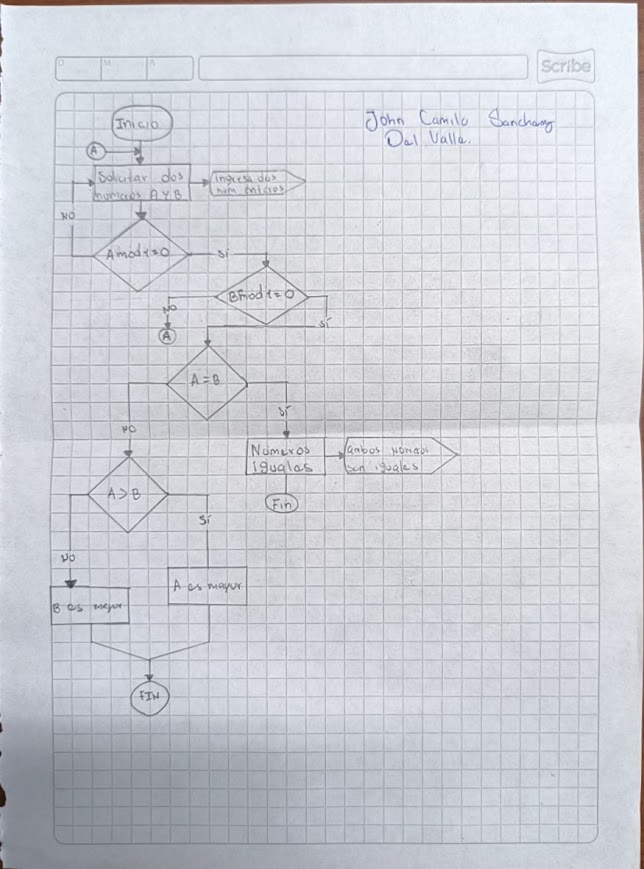 D M A
Scribe
John Camilo Sanchez
Del Valle.
Inicio
A
Solicitar dos
numeros A y B
ingresa dos
num enteros
NO
A mod 1 = 0
Sí
B mod 1 = 0
NO
Sí
A
A = B
Sí
NO
Números
iguales
ambos numeros
son iguales
A > B
Fin
Sí
NO
A es mayor
B es mayor
FIN